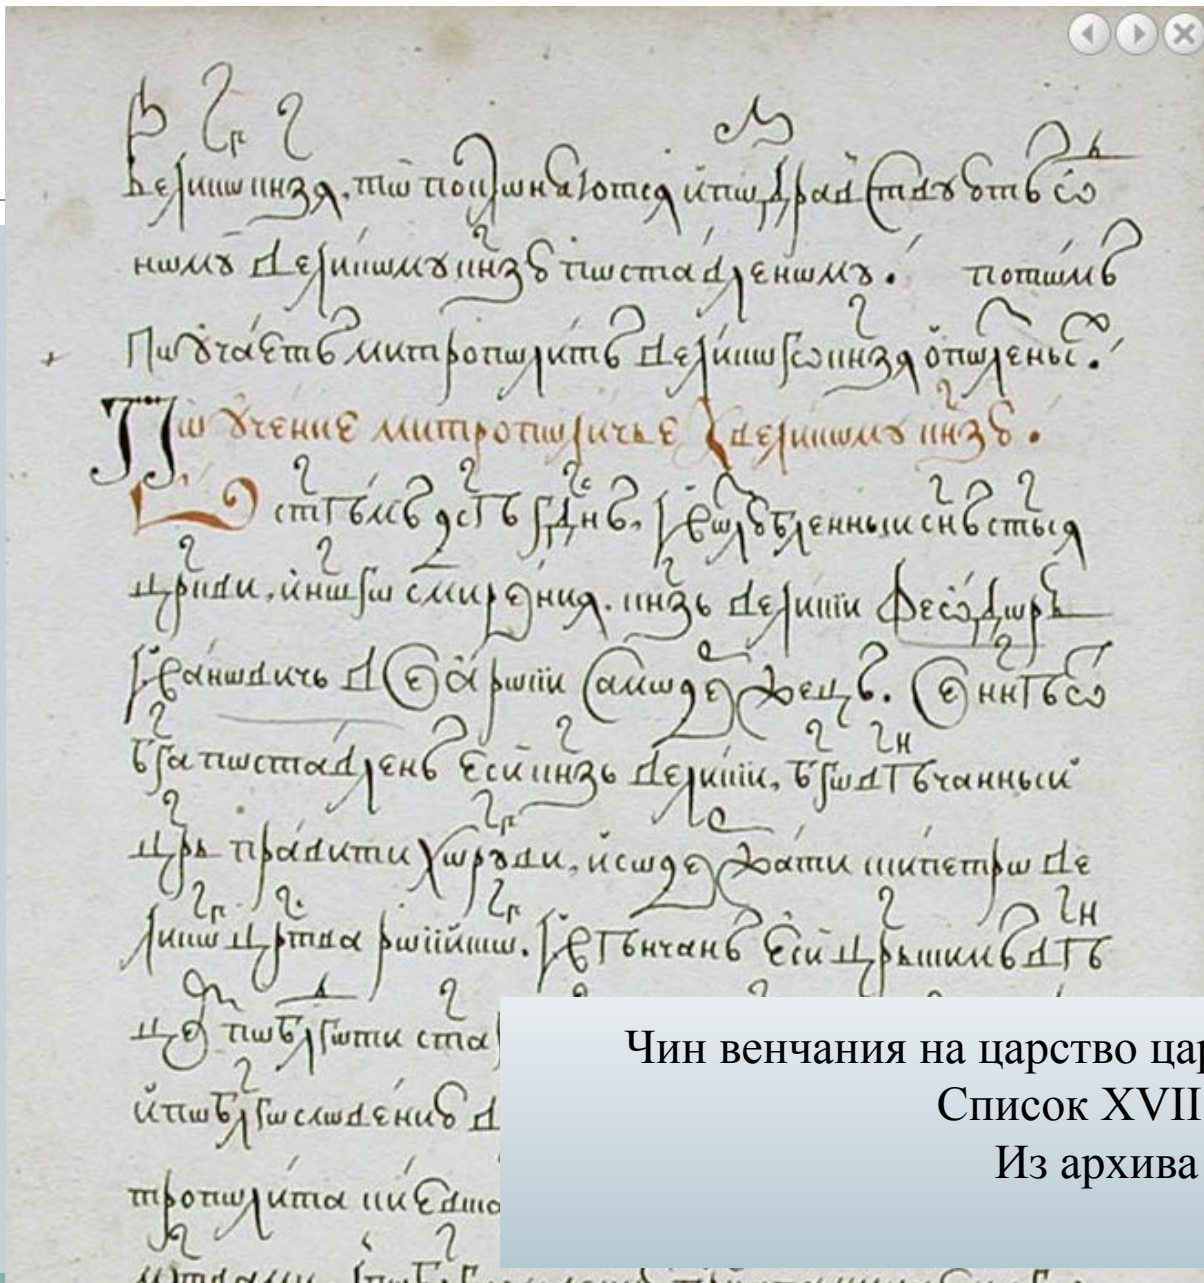 великω кнзѧ. тω поклωнѧютсѧ и пωздравствуютъ ѿ
нωму великωму кнзю пωставленωму. потωмъ
Пωучаетъ митропωлитъ великωгω кнзѧ
Пωучение митропωличье к великωму кнзю.
О стѣмъ дсѣ гднь, вωзлюбленныи снъ стыѧ
цркви, и ншгω смирения. кнзь великїи Феѡдωръ
Иванωвичь всеа рωсїи самωдержецъ. се ннѣ ѿ
бга пωставленъ еси кнзь великїи, бгωвѣчанныи
црь правити хωругви, и сωдержати скипетрω ве
ликω цртва рωсїискω. и вѣнчанъ еси црьскимъ вѣн
це пω блгωти ста
и пω блгωслωвению в
тропωлита киевска
Чин венчания на царство цар
Список XVII
Из архива